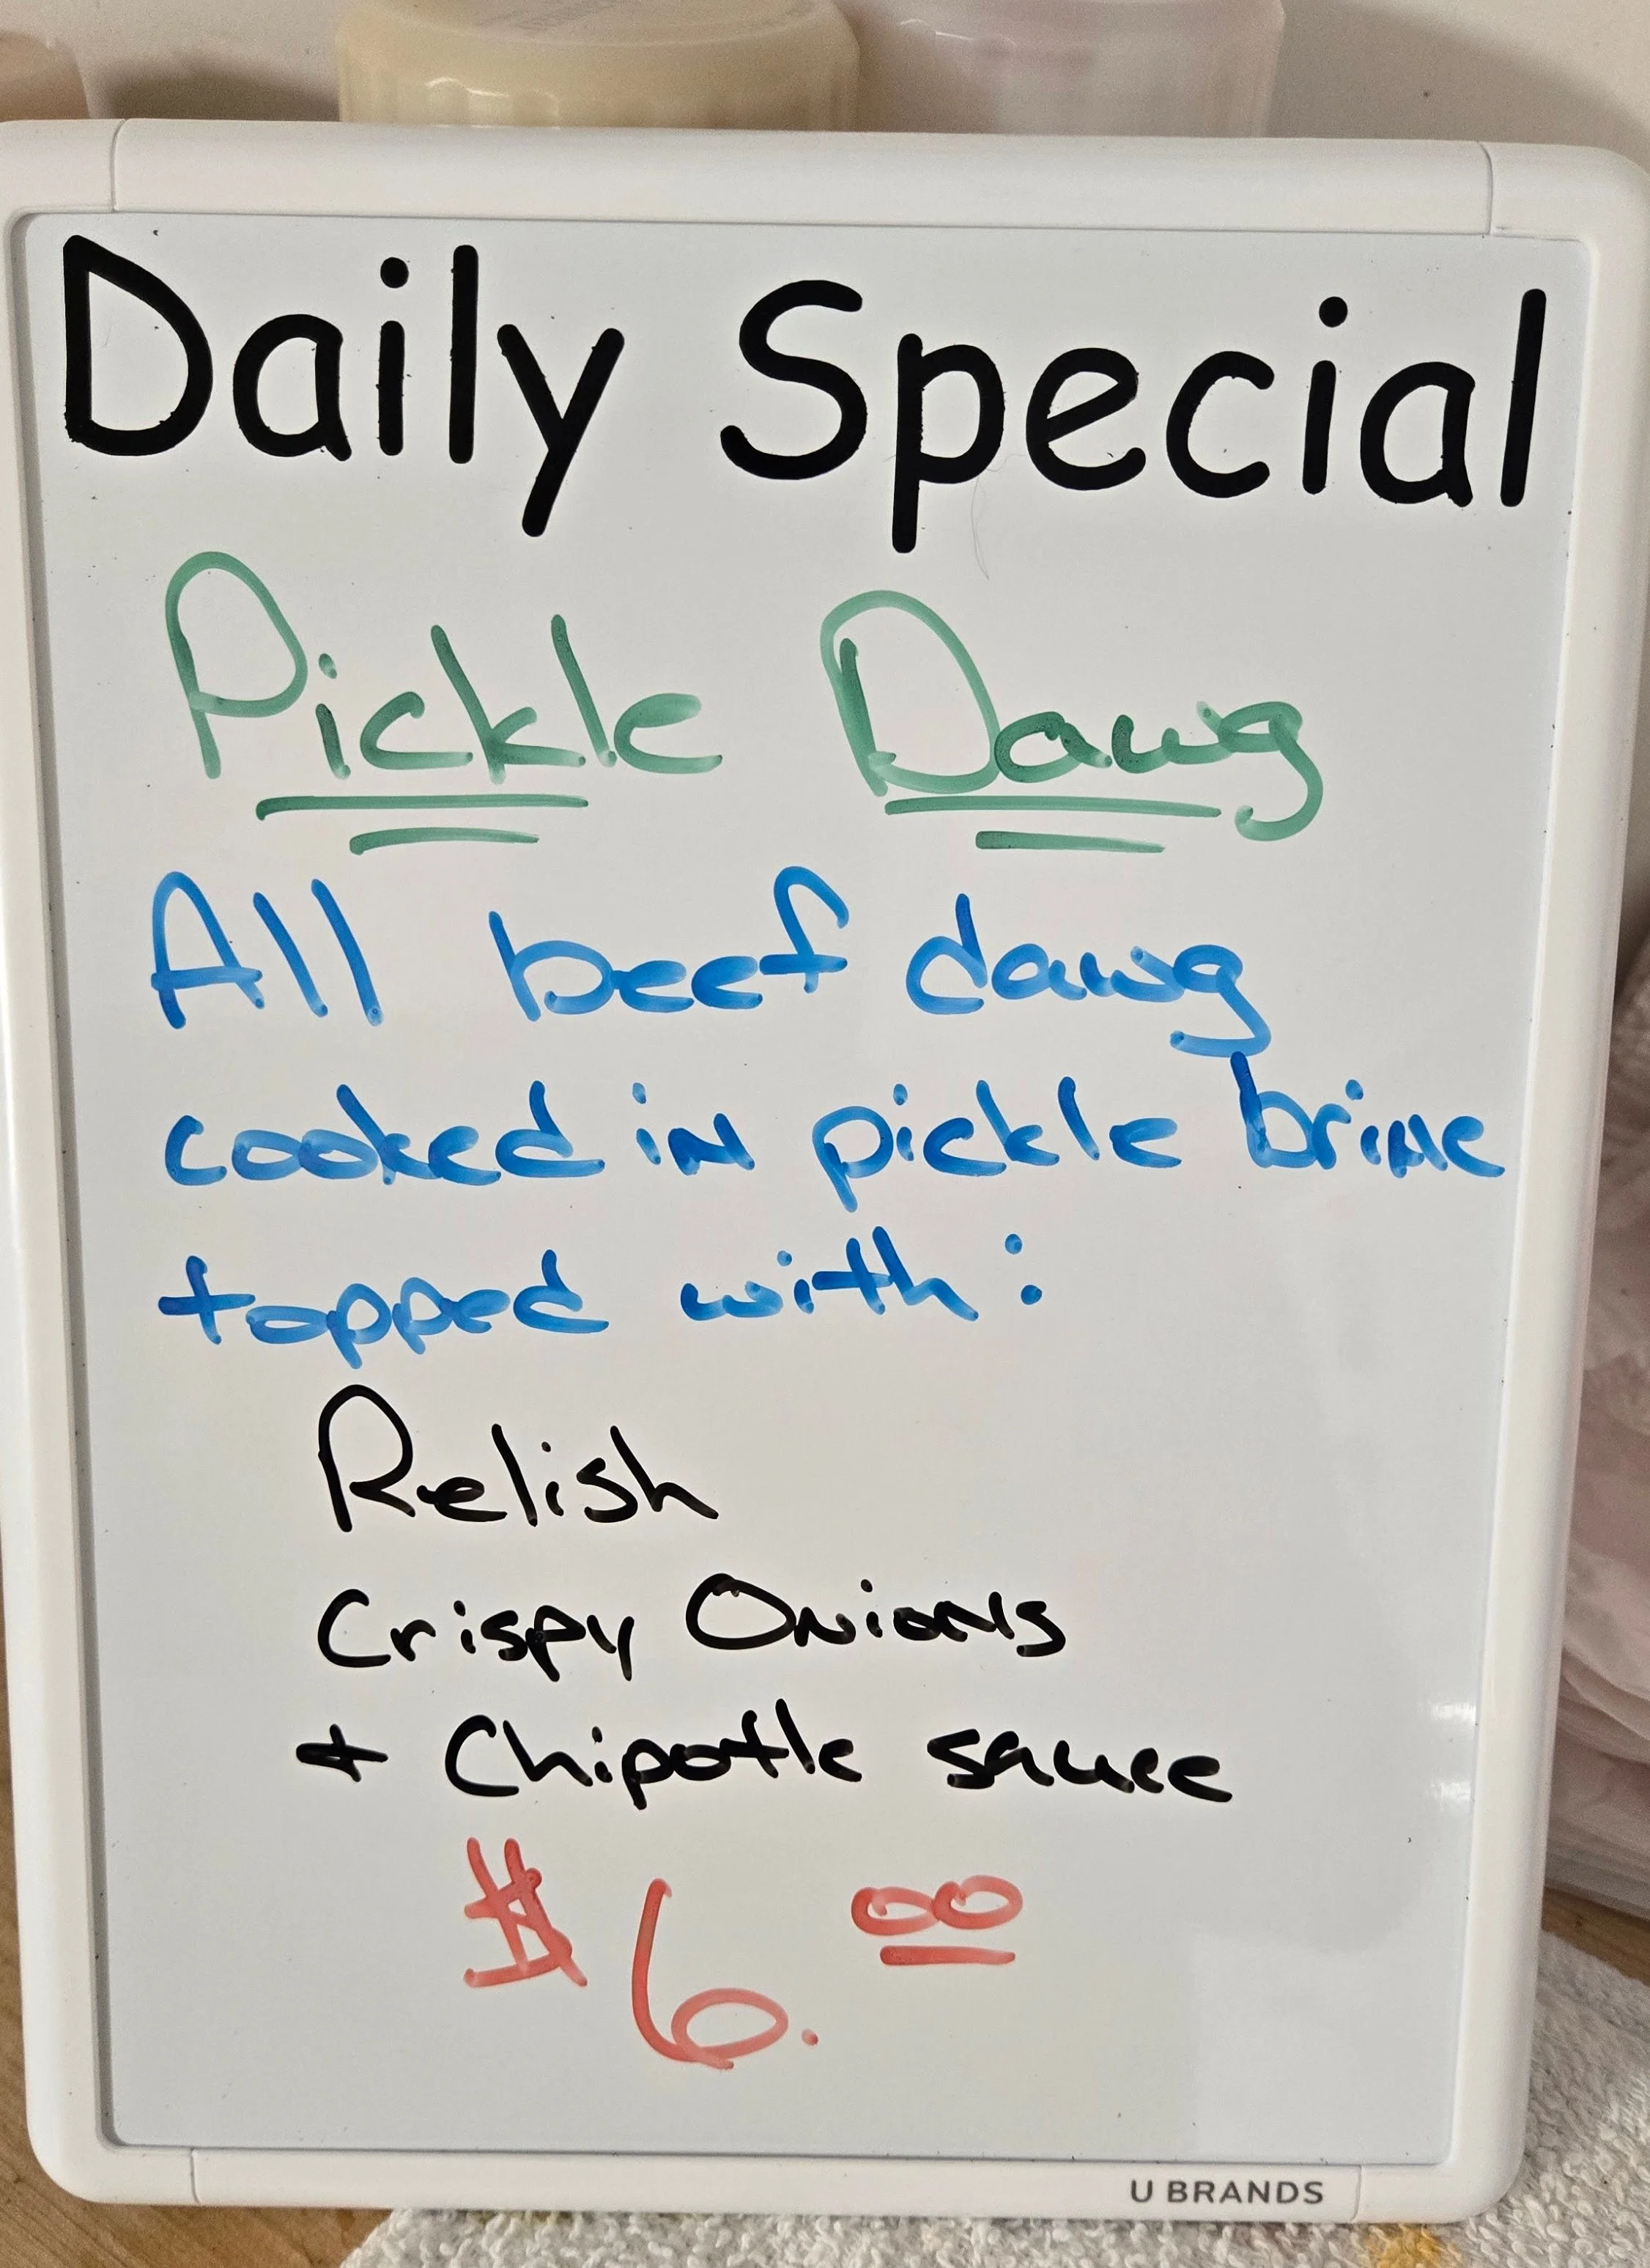 Daily Special
Pickle Dawg
All beef dawg
cooked in pickle brine
topped with:
Relish
Crispy Onions
+ Chipotle sauce
$6.00
U BRANDS